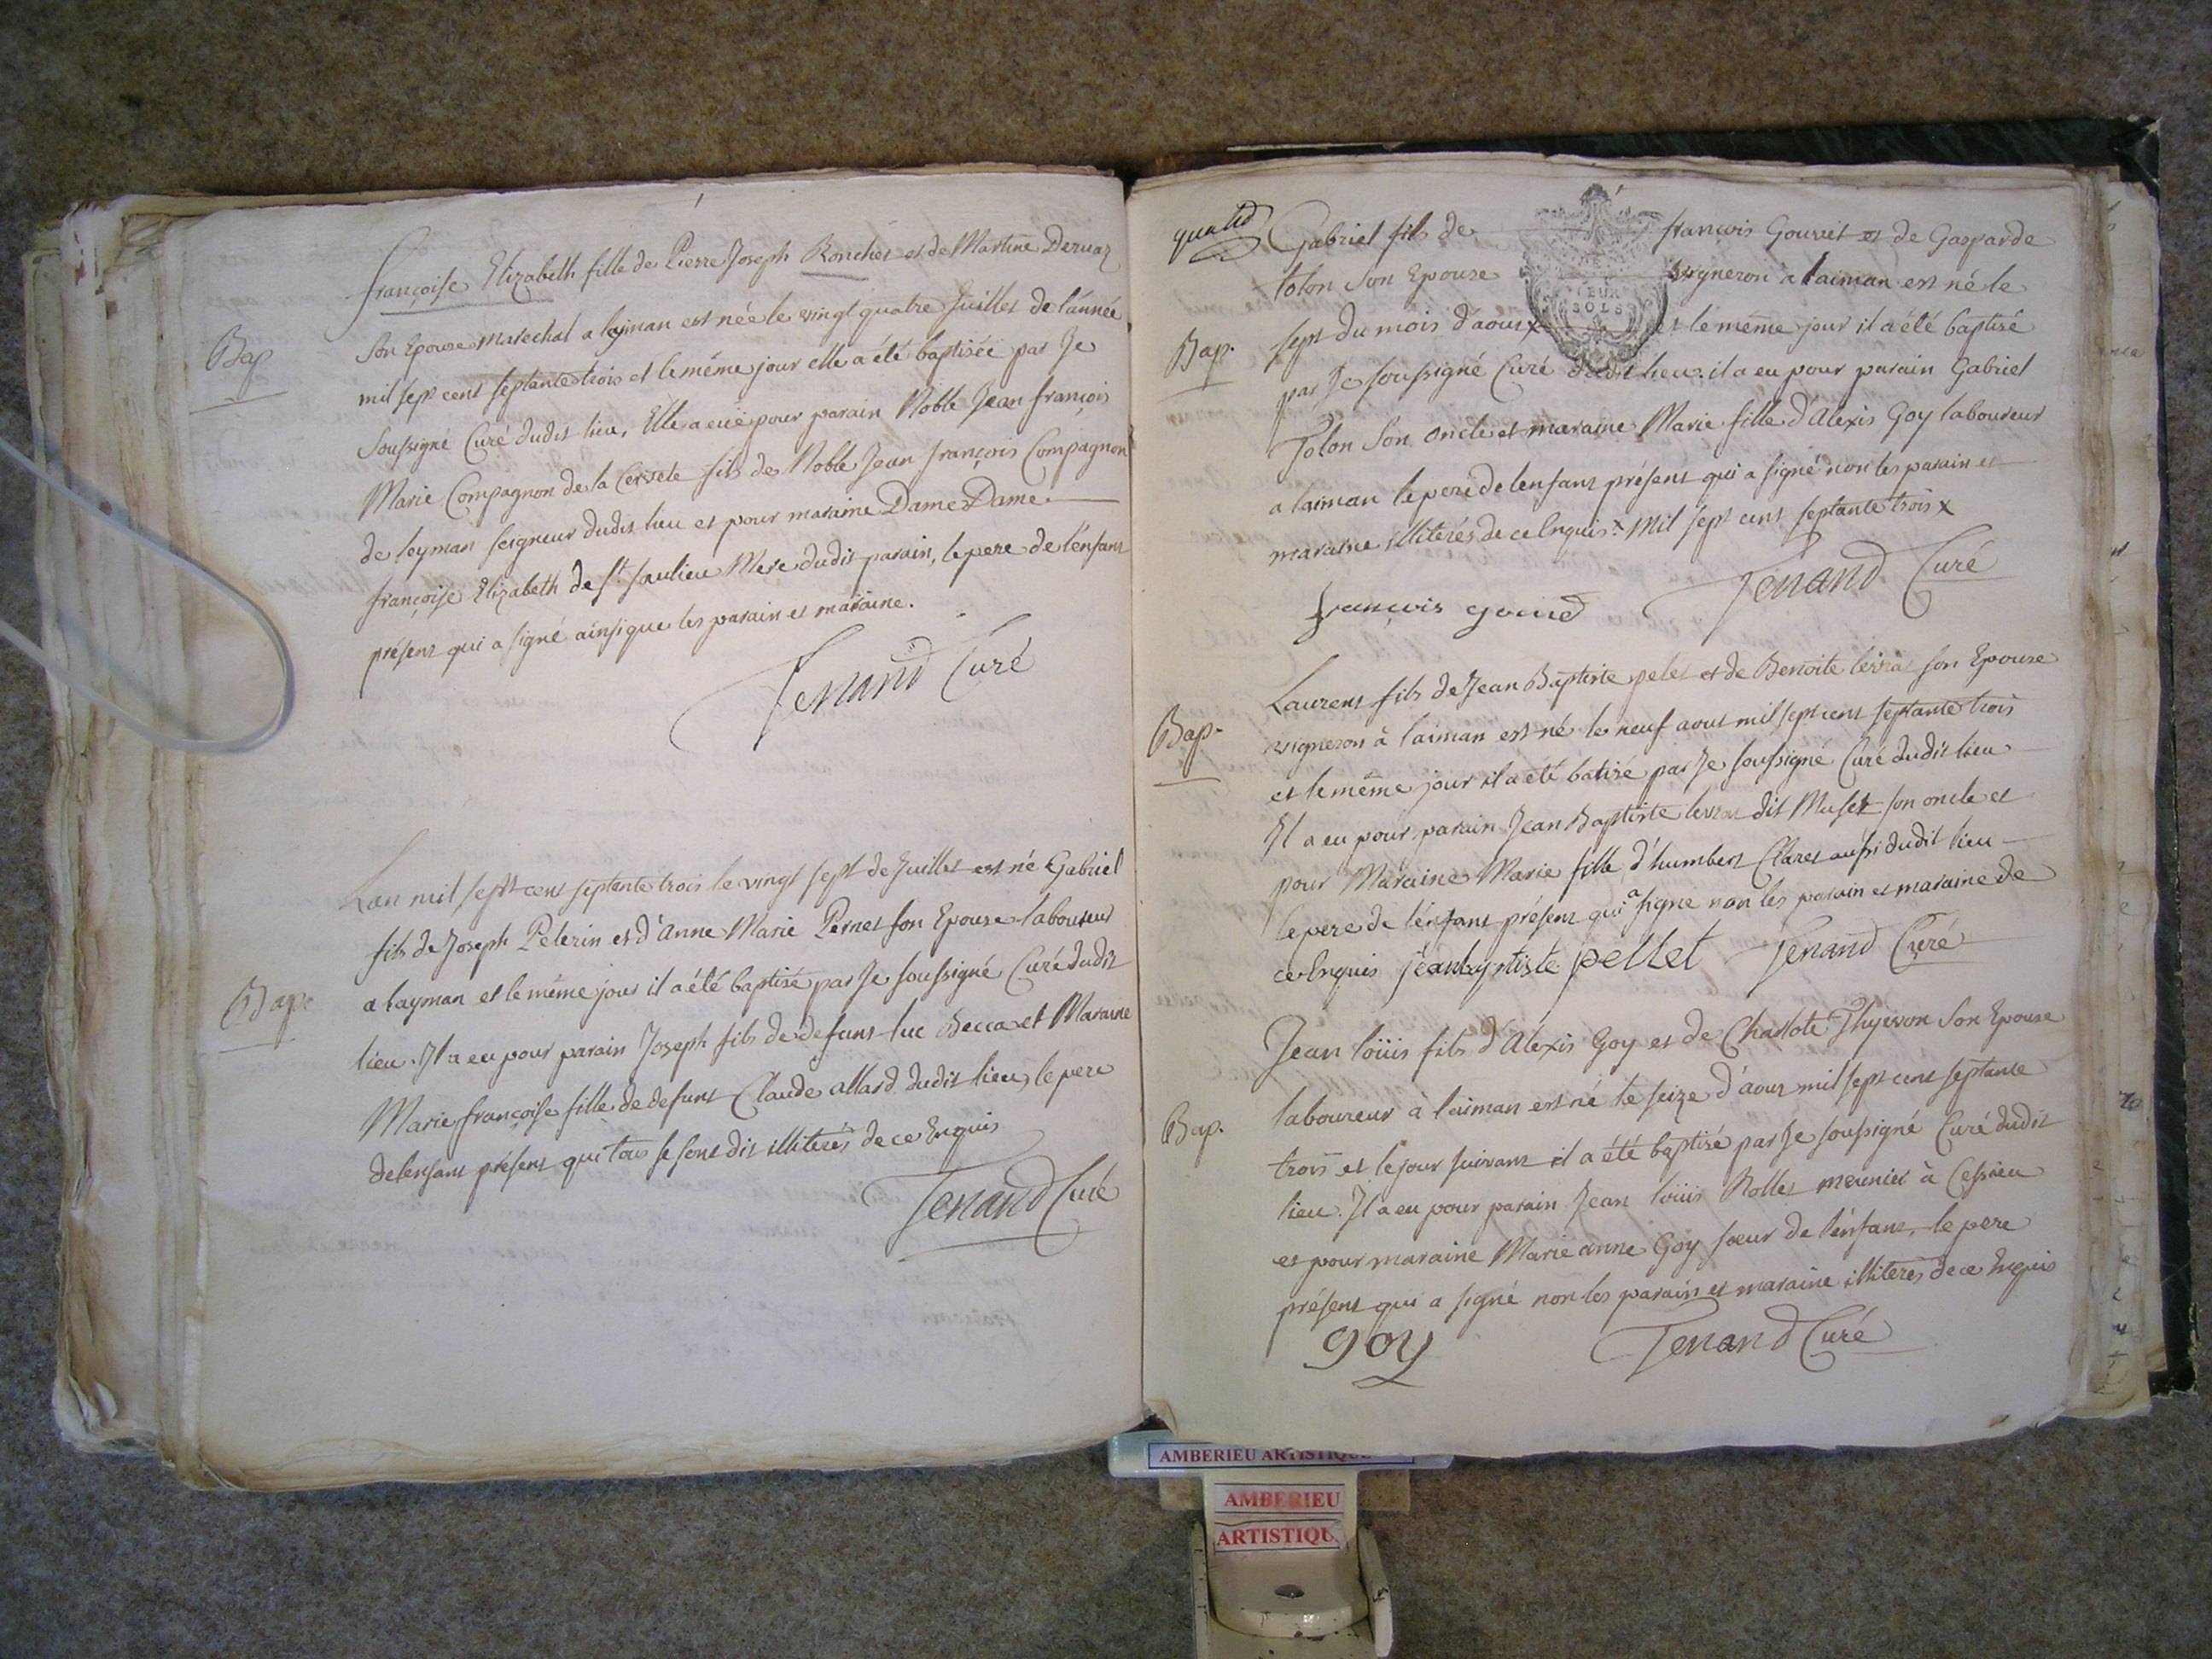 françoise Elizabeth fille de Pierre Joseph Ronchet et de Martine Dervaz
Bap
son Epouse marechal a leyman est née le vingt quatre Juillet de l'année
mil sept cent septante trois et le même jour elle a été baptisée par Je
soussigné Curé dudit lieu, Elle a euë pour parain Noble Jean françois
Marie Compagnon de la Servete fils de Noble Jean françois Compagnon
de leyman seigneur dudit lieu et pour maraine Dame Dame
françoise Elizabeth de st. Saulieu Mere dudit parain, le pere de l'enfant
présent qui a signé ainsi que les parain et maraine.
Tenand Curé
Lan mil sept cent septante trois le vingt sept de Juillet est né Gabriel
fils de Joseph Pelerin et d'Anne Marie Pernet son Epouse laboureur
Bap.
a layman et le même jour il a été baptisé par Je soussigné Curé dudit
lieu. Il a eu pour parain Joseph fils de defunt luc Becca et Maraine
Marie françoise fille de defunt Claude allard dudit lieu, le pere
de lenfant présent qui tous se sont dit illiterés de ce Enquis
Tenand Curé
Gabriel fils de françois Gouvet et de Gasparde
tolon son Epouse vigneron a laiman est né le
DEUX
SOLS
Bap.
sept du mois d'aout x et le même jour il a été baptisé
par Je soussigné Curé dudit lieu. il a eu pour parain Gabriel
Tolon son oncle et maraine Marie fille d'Alexis Goy laboureur
a laiman le pere de lenfant présent qui a signé non les parain et
maraine illiterés de ce Enquis. x Mil sept cent septante trois x
françois gouvet Tenand Curé
Laurent fils de Jean Baptiste pelet et de Benoite levrat son Epouse
Bap.
vigneron à laiman est né le neuf aout mil sept cent septante trois
et le même jour il a été batisé par Je soussigné Curé dudit lieu
Il a eu pour parain Jean Baptiste levrat dit Muset son oncle et
pour Maraine Marie fille d'humbert Claret aussi dudit lieu
le pere de l'enfant présent qui a signe non les parain et maraine de
ce Enquis jean baptiste pellet Tenand Curé
Jean loüis fils d'Alexis Goy et de Charlote Thyevon son Epouse
Bap.
laboureur à laiman est né le seize d'aout mil sept cent septante
trois et le jour suivant il a été baptisé par Je soussigné Curé dudit
lieu. Il a eu pour parain Jean loüis Rollet meunier à Cessieu
et pour maraine Marie anne Goy soeur de l'enfant, le pere
présent qui a signé non les parain et maraine illiterés de ce Enquis
goy Tenand Curé
AMBERIEU ARTISTIQUE
AMBERIEU
ARTISTIQU